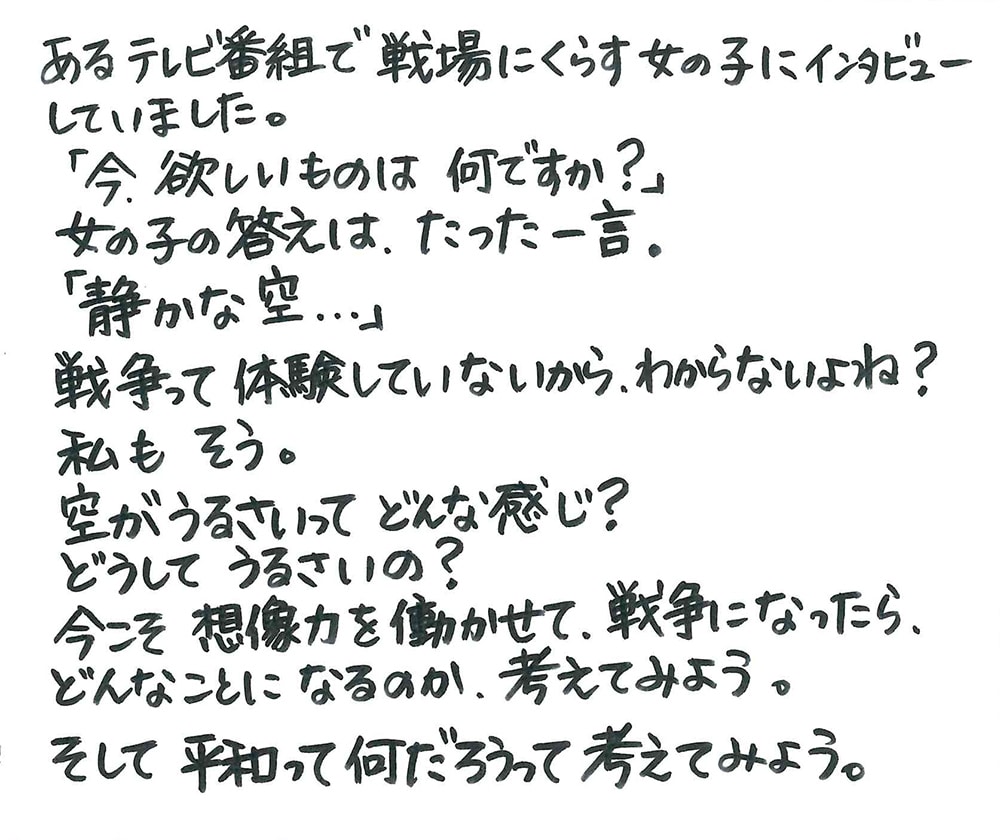 あるテレビ番組で戦場にくらす女の子にインタビュー
していました。
「今、欲しいものは何ですか?」
女の子の答えは、たった一言。
「静かな空…」
戦争って体験していないから、わからないよね?
私もそう。
空がうるさいってどんな感じ?
どうしてうるさいの?
今こそ想像力を働かせて、戦争になったら、
どんなことになるのか、考えてみよう。
そして平和って何だろうって考えてみよう。